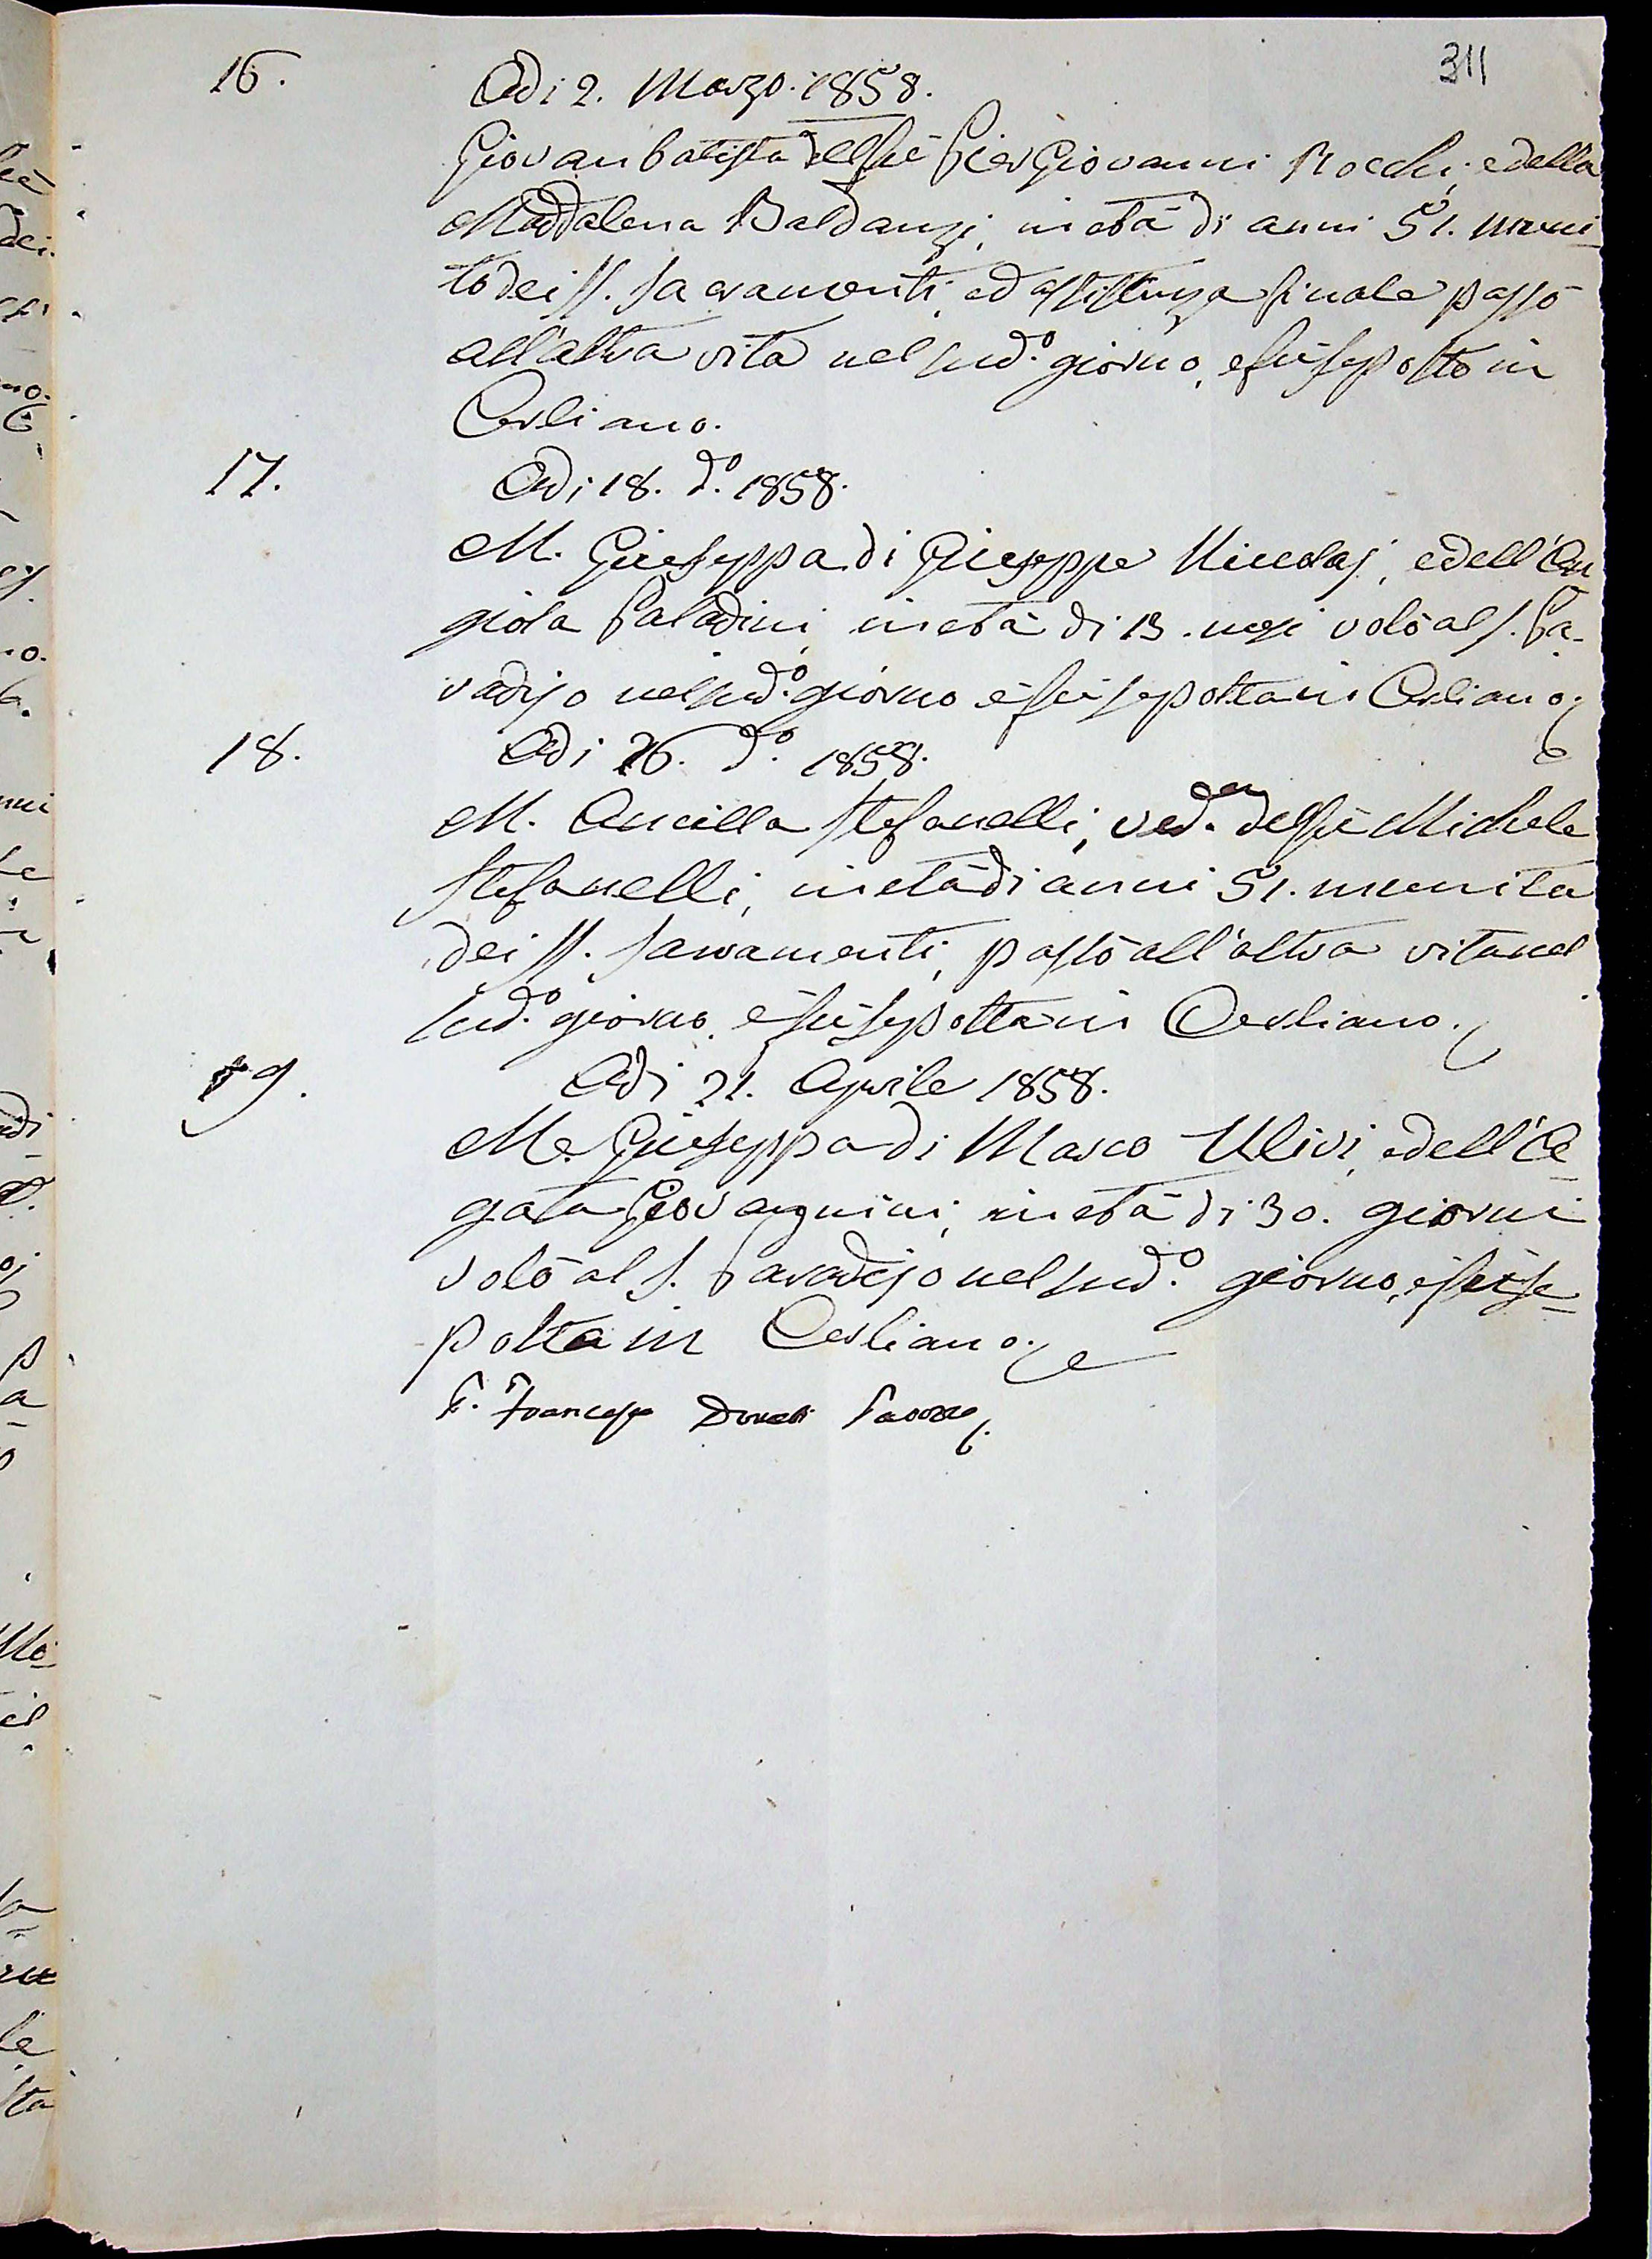 311
16.
Adi 2. Marzo. 1858.
Giovanbatista del fù Pier Giovanni Nocchi, e della
Maddalena Baldanzi, in età di anni 51. muni-
to dei SS. Sacramenti, ed assistenza finale passò
all'altra vita nel sud.o giorno, e fù sepolto in
Cerliano.
17.
Adi 18. d.o 1858.
M. Giuseppa di Giuseppe Nicolaj, e dell'An
giola Paladini, in età di 13. mesi volò al S. Pa-
radiso nel sud.o giorno e fù sepolta in Cerliano
18.
Adi 26. d.o 1858.
M. Ancilla Stefanelli, ved.a del fù Michele
Stefanelli, in età di anni 51. munita
dei SS. Sacramenti, passò all'altra vita nel
sud.o giorno, e fù sepolta in Cerliano.
19.
Adi 21. Aprile 1858.
M. Giuseppa di Marco Ulivi, e dell'A-
gata Giovannini, in età di 30. giorni
volò al S. Paradiso nel sud.o giorno, e fù se-
polta in Cerliano.
P. Francesco Donati